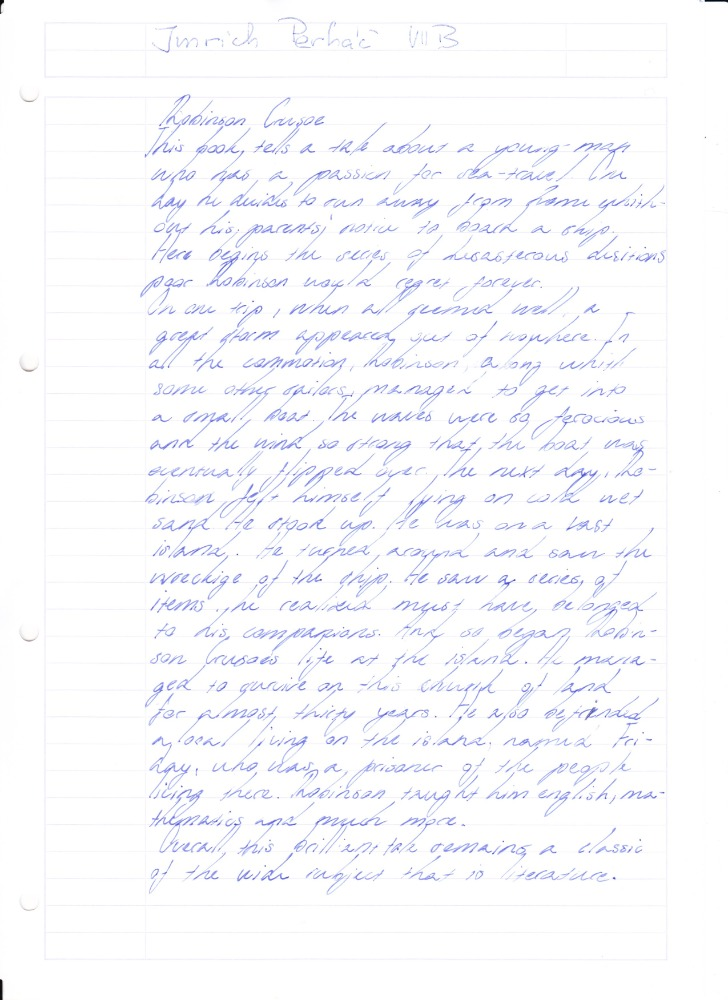 Imrich Perháč VII B
Robinson Crusoe
This book, tells a tale about a young-man
who has a passion for sea-travel. One
day he decides to run away from home whith-
out his parents' notice to board a ship.
Here begins the series of desasterous disitions
poor Robinson would regret forever.
On one trip, when all seemed well, a
great storm appeared out of nowhere. In
all the commotion, Robinson, along whith
some other sailors, managed to get into
a small boat. The waves were so ferocious
and the wind so strong that the boat was
eventually flipped over. The next day, Ro-
binson felt himself lying on cold wet
sand. He stood up. He was on a vast
island. He turned around and saw the
wreckige of the ship. He saw a series of
items, he realized must have belonged
to his companions. And so began Robin-
son Crusoes life at the island. He mana-
ged to survive on this chunk of land
for almost thirty years. He also befriended
a local living on the island, named Fri-
day, who was a prisoner of the people
living there. Robinson taught him english, ma-
thematics and much more.
Overall, this brilliant tale remains a classic
of the wide subject that is literature.